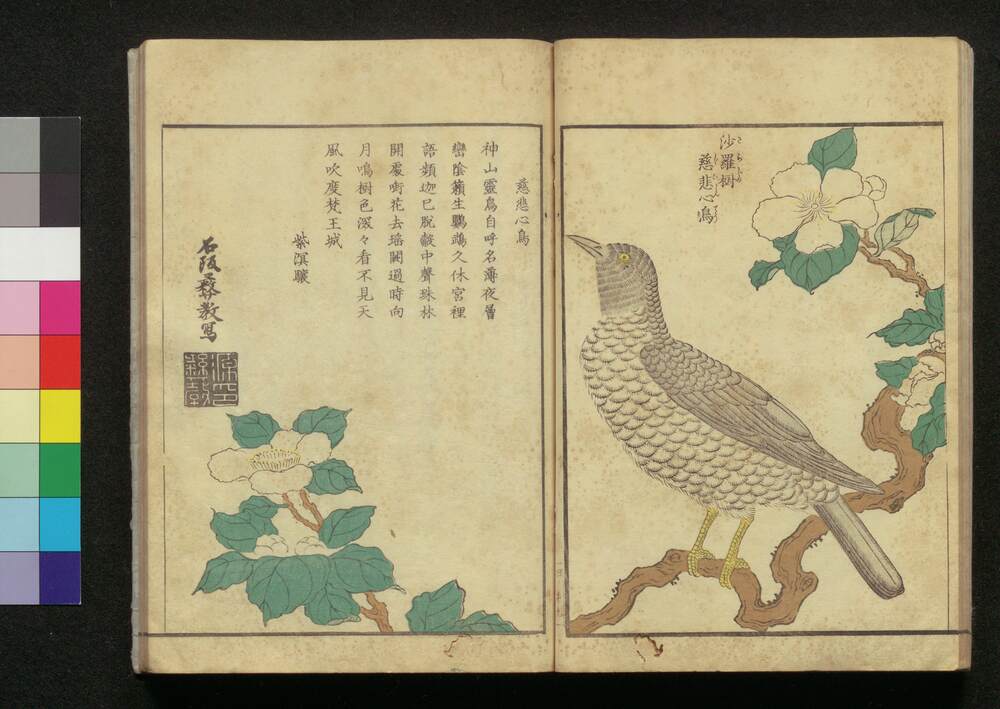 沙羅樹
慈悲心鳥
慈悲心鳥
神山靈鳥自呼名薄夜層
巒陰籟生鸚鵡久休宮裡
語頻迦已脱㲉中聲珠林
開處啣花去瑶闕過時向
月鳴樹色深々看不見天
風吹度梵王城
紫溟驤
石阪教寫